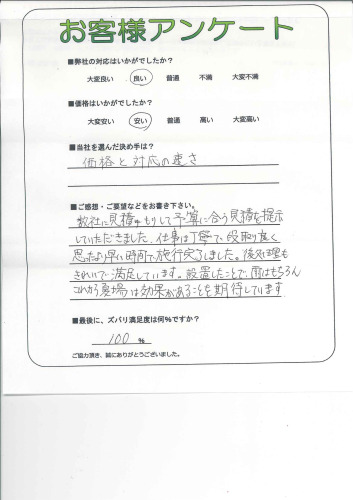 お客様アンケート
■弊社の対応はいかがでしたか？
大変良い 良い 普通 不満 大変不満
■価格はいかがでしたか？
大変安い 安い 普通 高い 大変高い
■当社を選んだ決め手は？
価格と対応の速さ
■ご感想・ご要望などをお書き下さい。
数社に見積りもりして予算に合う見積を提示
していただきました。仕事は丁寧で段取り良く
思ったより早い時間で施行完了しました。後処理も
きれいで満足しています。設置したことで、雨はもちろん
これから夏場は効果があることを期待しています
■最後に、ズバリ満足度は何%ですか？
100 %
ご協力頂き、誠にありがとうございました。